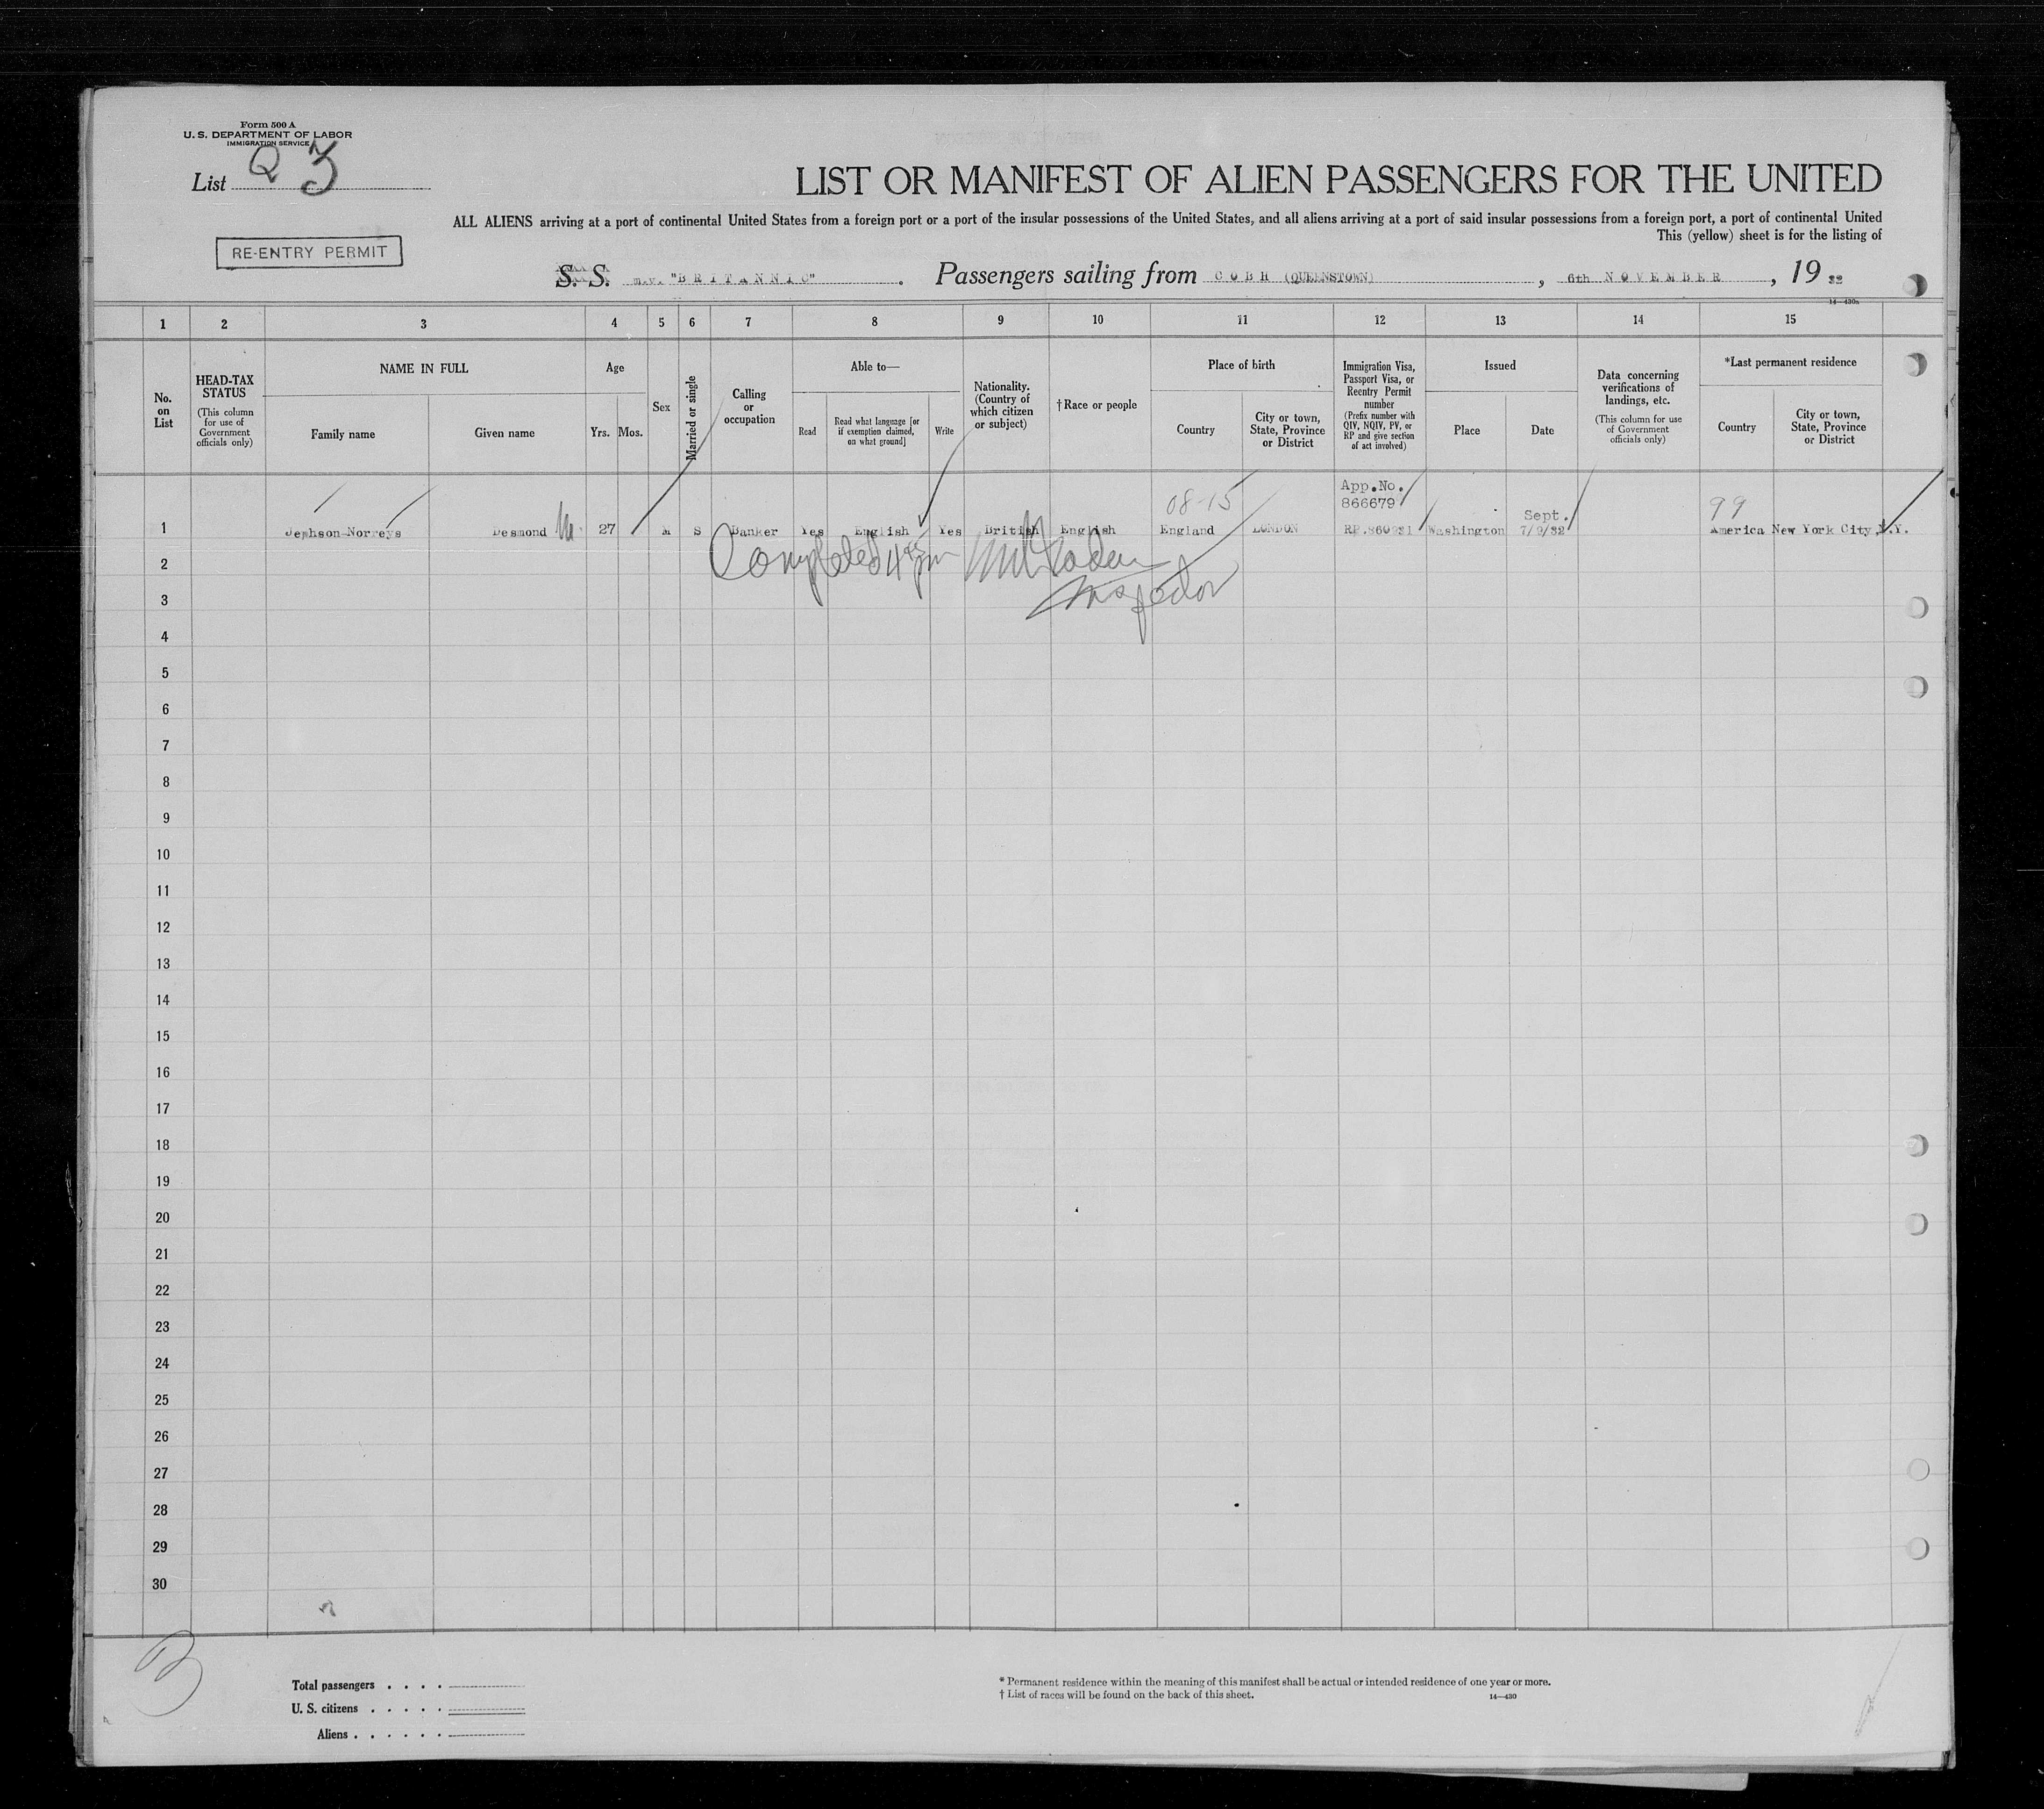 Form 500 A
U. S. DEPARTMENT OF LABOR
IMMIGRATION SERVICE
List Q 3
LIST OR MANIFEST OF ALIEN PASSENGERS FOR THE UNITED
ALL ALIENS arriving at a port of continental United States from a foreign port or a port of the insular possessions of the United States, and all aliens arriving at a port of said insular possessions from a foreign port, a port of continental United
This (yellow) sheet is for the listing of
RE-ENTRY PERMIT
S. S. m.v. "BRITANNIC". Passengers sailing from COBH (QUEENSTOWN), 6th NOVEMBER, 19 32
14—430a
1 2 3 4 5 6 7 8 9 10 11 12 13 14 15
No. on List
HEAD-TAX STATUS
(This column for use of Government officials only)
NAME IN FULL
Family name
Given name
Age
Yrs.
Mos.
Sex
Married or single
Calling or occupation
Able to—
Read
Read what language [or if exemption claimed, on what ground]
Write
Nationality. (Country of which citizen or subject)
†Race or people
Place of birth
Country
City or town, State, Province or District
Immigration Visa, Passport Visa, or Reentry Permit number
(Prefix number with QIV, NQIV, PV, or RP and give section of act involved)
Issued
Place
Date
Data concerning verifications of landings, etc.
(This column for use of Government officials only)
*Last permanent residence
Country
City or town, State, Province or District
08-15
App.No.
866679
99
Sept.
1 Jephson-Norreys Desmond M. 27 M S Banker Yes English Yes British English England LONDON Washington 7/9/32 America New York City, N.Y.
Completed
Inspector
2
3
4
5
6
7
8
9
10
11
12
13
14
15
16
17
18
19
20
21
22
23
24
25
26
27
28
29
30
Total passengers . . . .
U. S. citizens . . . . .
Aliens . . . . . .
* Permanent residence within the meaning of this manifest shall be actual or intended residence of one year or more.
† List of races will be found on the back of this sheet.
14—430